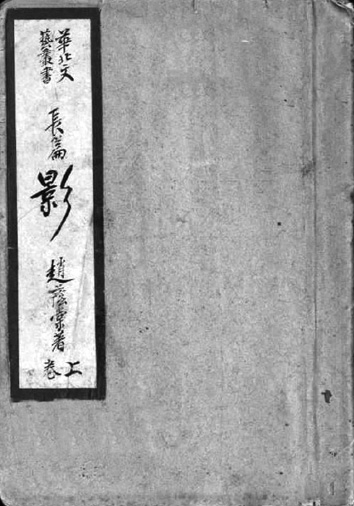 華北文
藝叢書
長篇
影
趙蔭棠著
上卷